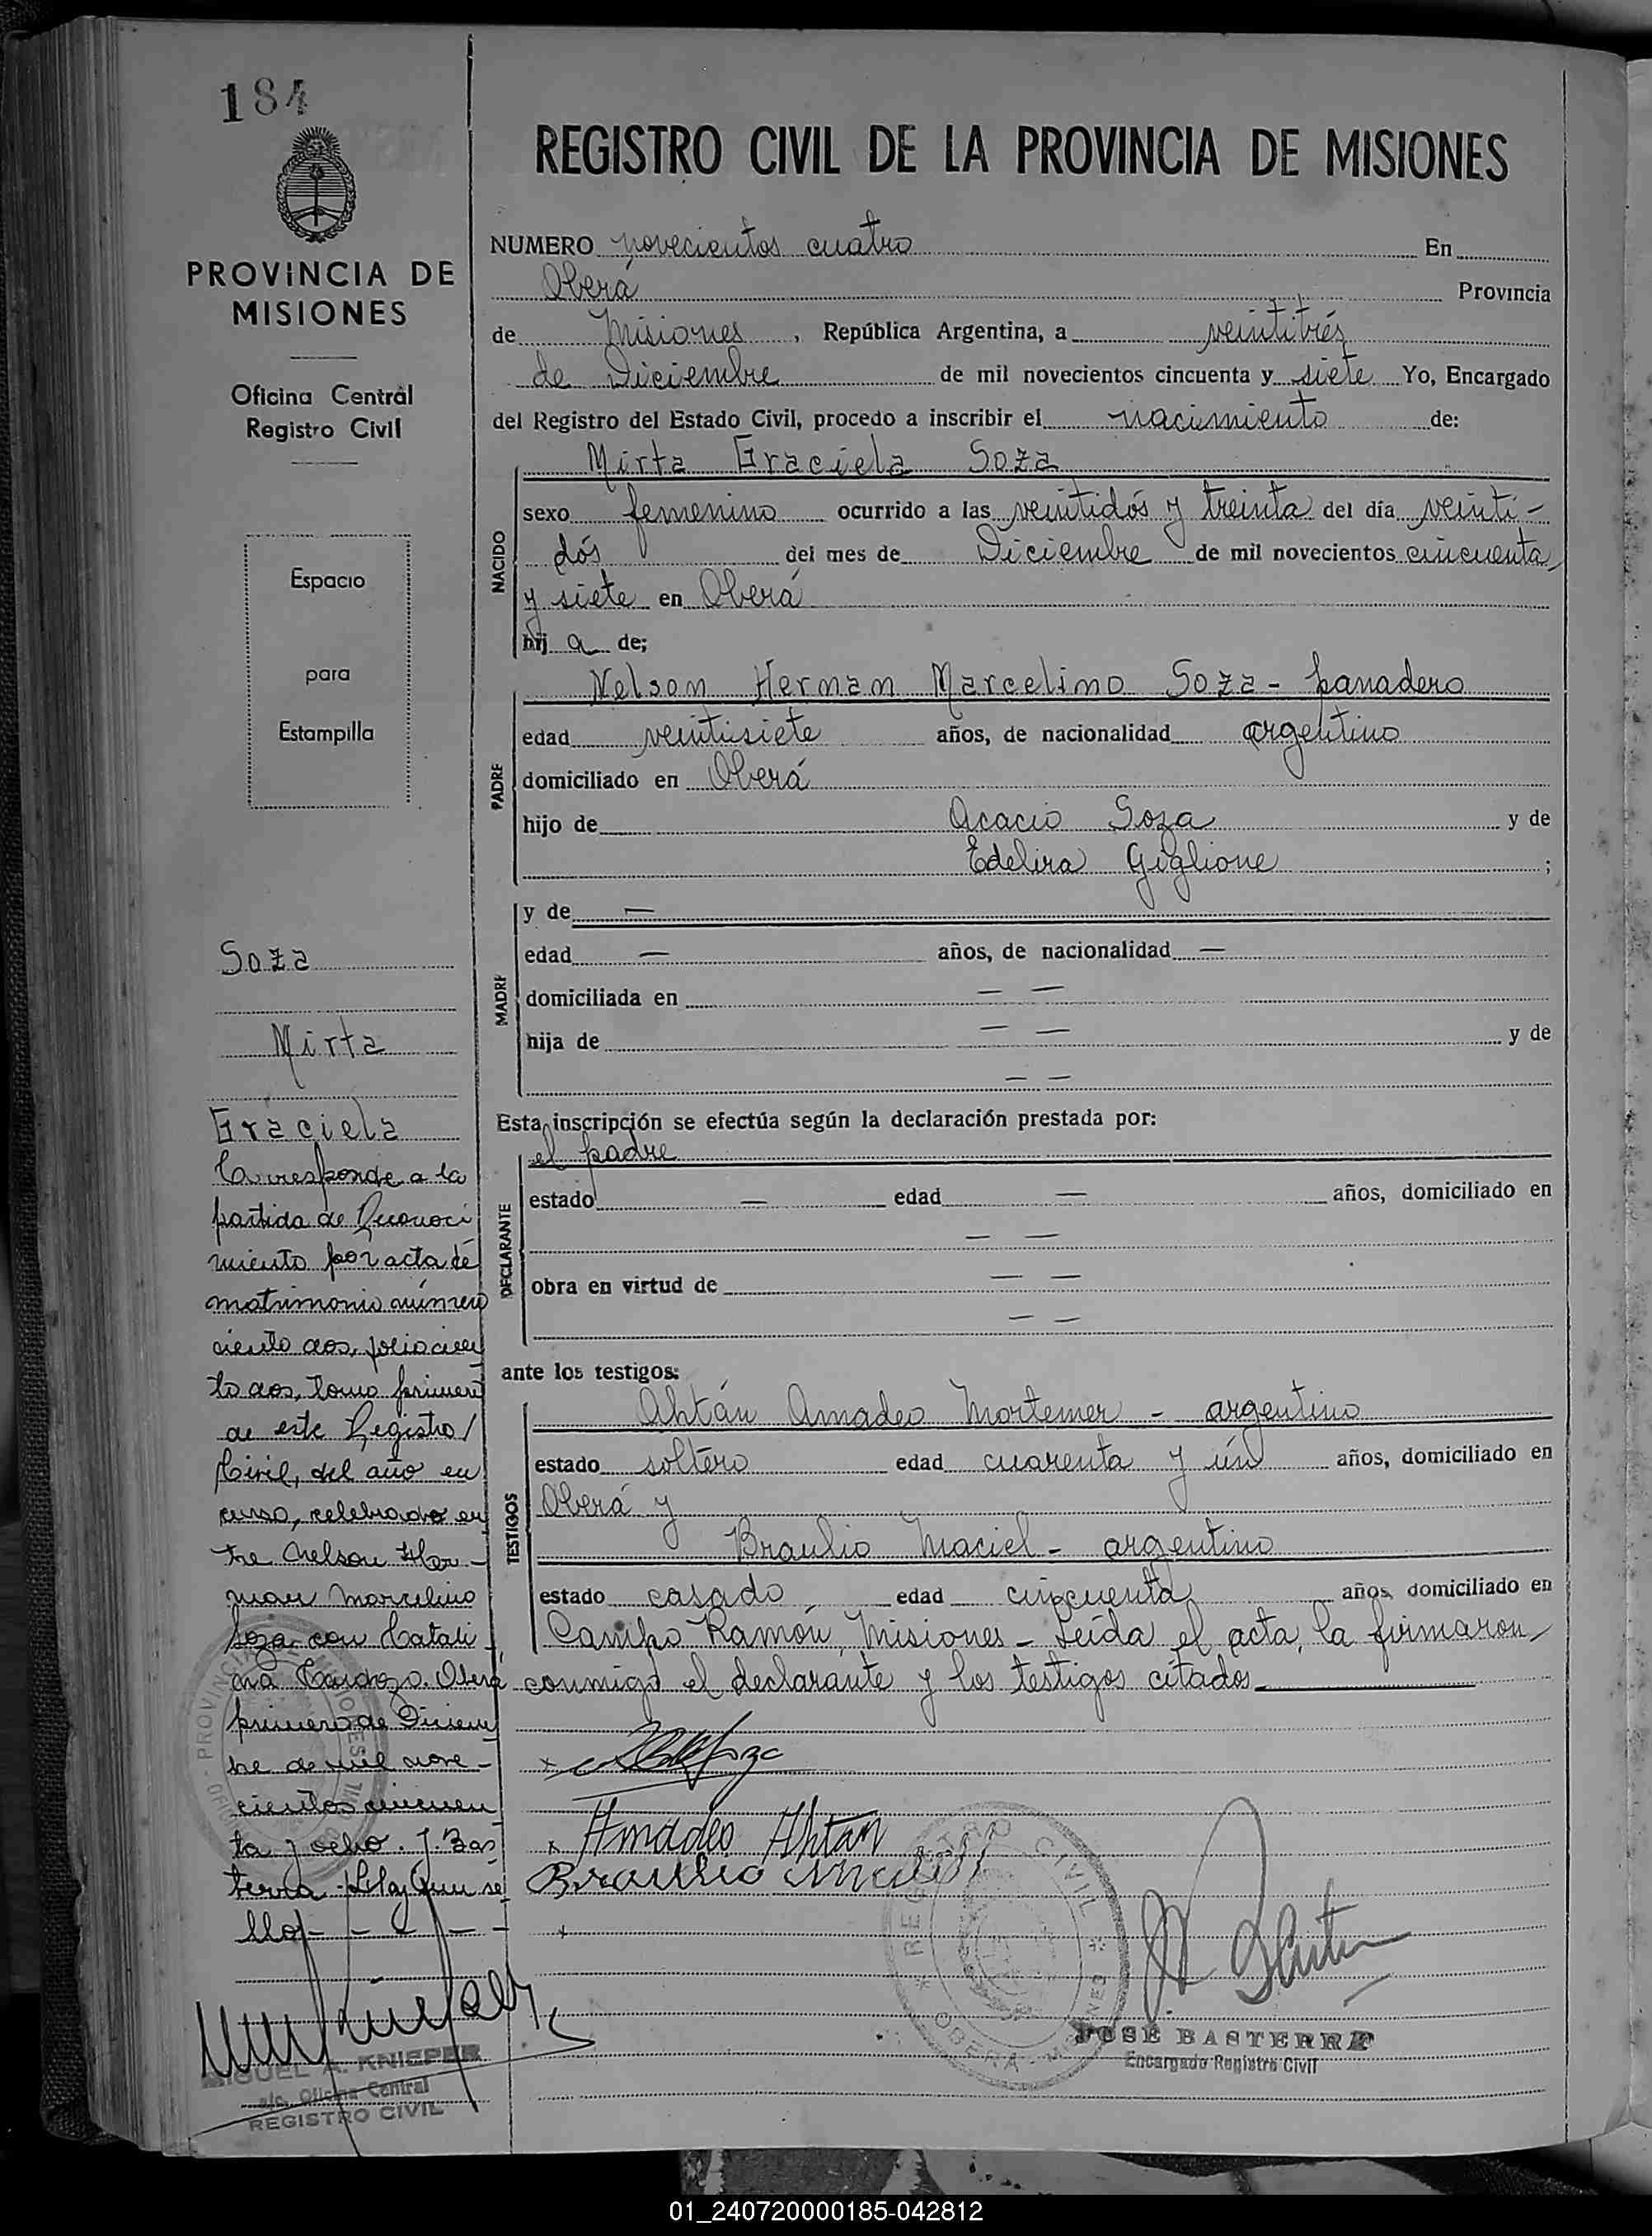 184
PROVINCIA DE
MISIONES
Oficina Central
Registro Civil
Espacio
para
Estampilla
Soza
Mirta
Graciela
Corresponde a la
partida de Reconoci
miento por acta de
matrimonio número
ciento dos, folio cien
to dos, tomo primero
de este Registro/
Civil, del año en
curso, celebrado en
tre Nelson Her-
man Marcelino
Soza con Catali-
na Cardozo. Oberá
primero de Diciem
bre de mil nove-
cientos cincuen
ta y ocho. J. Bas
terra. Hay un se
llo/- - - - -
MIGUEL A. KNIEPER
a/c. Oficina Central
REGISTRO CIVIL
REGISTRO CIVIL DE LA PROVINCIA DE MISIONES
NUMERO novecientos cuatro En
Oberá Provincia
de Misiones, República Argentina, a veintitrés
de Diciembre de mil novecientos cincuenta y siete Yo, Encargado
del Registro del Estado Civil, procedo a inscribir el nacimiento de:
Mirta Graciela Soza
NACIDO
sexo femenino ocurrido a las veintidós y treinta del día veinti-
dós del mes de Diciembre de mil novecientos cincuenta
y siete en Oberá
hij a de;
Nelson Herman Marcelino Soza - panadero
PADRE
edad veintisiete años, de nacionalidad argentino
domiciliado en Oberá
hijo de Acacio Soza y de
Edelira Giglione ;
MADRE
y de —
edad — años, de nacionalidad —
domiciliada en — —
hija de — — y de
— —
Esta inscripción se efectúa según la declaración prestada por:
el padre
DECLARANTE
estado — edad — años, domiciliado en
— —
obra en virtud de — —
— —
ante los testigos:
Ahtán Amadeo Mortemer - argentino
TESTIGOS
estado soltero edad cuarenta y ún años, domiciliado en
Oberá y
Braulio Maciel - argentino
estado casado, edad cincuenta años, domiciliado en
Campo Ramón, Misiones - Leída el acta, la firmaron
conmigo el declarante y los testigos citados
Amadeo Ahtan
Braulio Maciel
REGISTRO CIVIL
OBERA
JOSE BASTERRA
Encargado Registro Civil
01_240720000185-042812